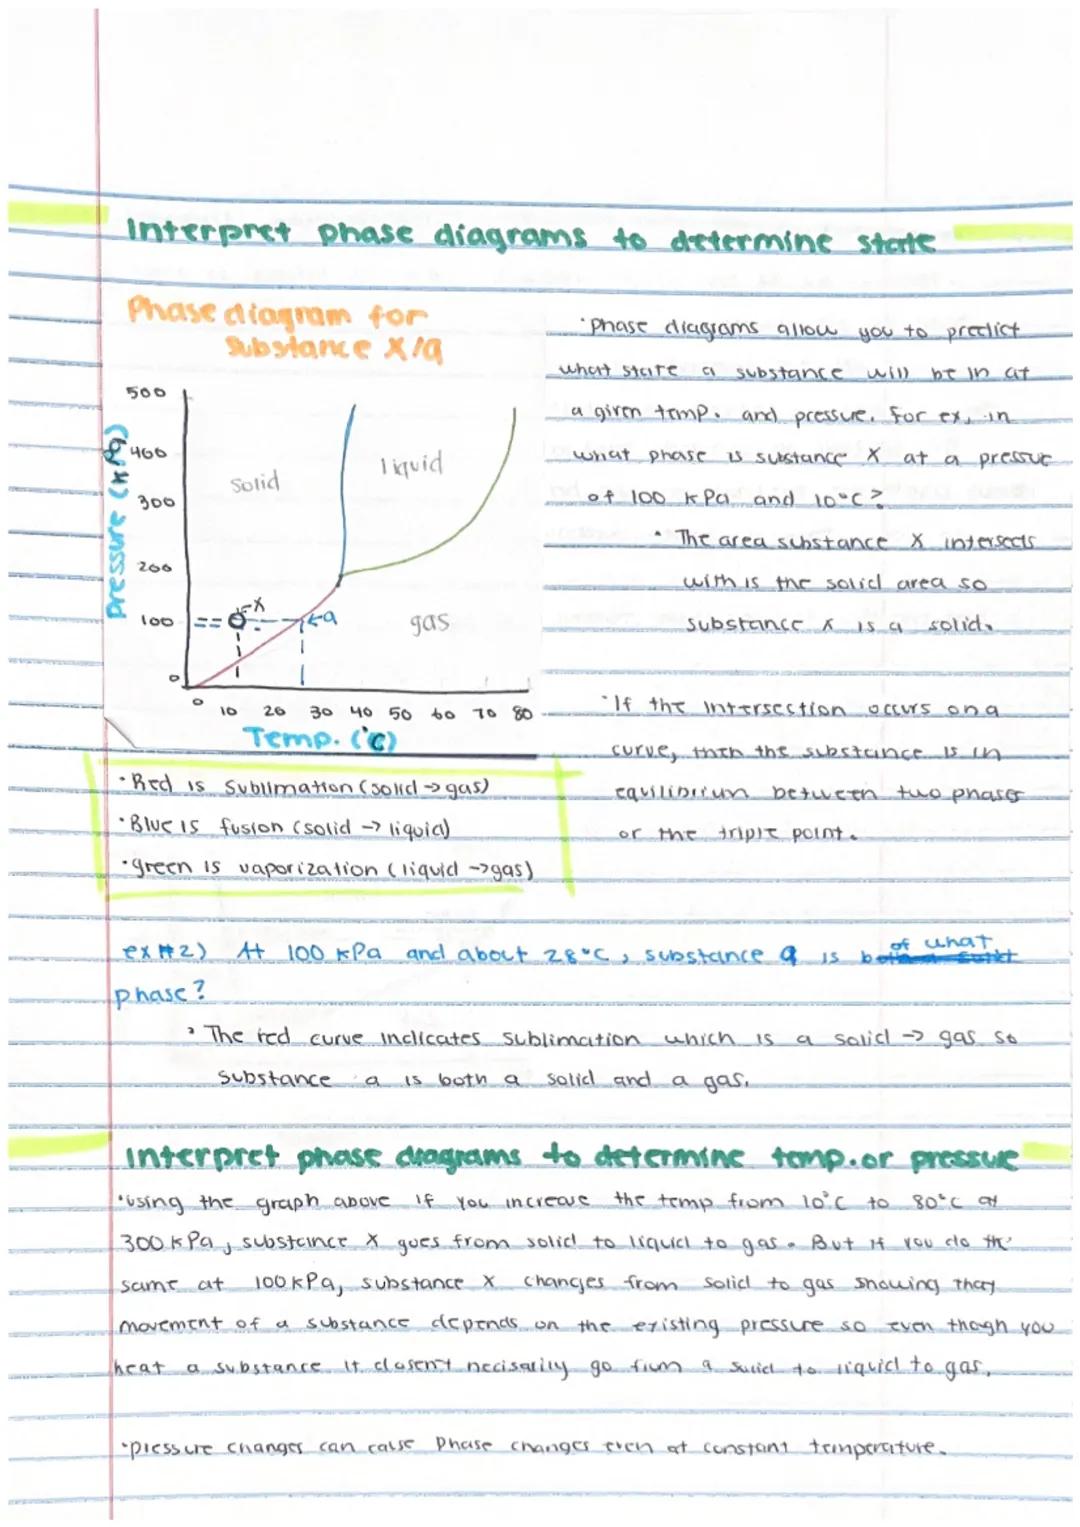 Interpret phase diagrams to determine state
Phase diagram for
Substance X/q
500
400
300
200
100
0
Pressure (kPa)
solid
liquid
gas
X
q
0 10 20 30 40 50 60 70 80
Temp. (°C)
·Phase diagrams allow you to predict
what state a substance will be in at
a given temp. and pressure. For ex, in
what phase is substance X at a pressure
of 100 kPa and 10°C?
· The area substance X intersects
with is the solid area so
substance x is a solid.
·If the intersection occurs on a
curve, then the substance is in
equilibrium between two phases
or the triple point.
·Red is Sublimation (solid → gas)
·Blue is fusion (solid → liquid)
·green is vaporization (liquid → gas)
ex #2) At 100 kPa and about 28°C, substance q is of what
phase?
· The red curve indicates sublimation which is a solid → gas so
substance q is both a solid and a gas.
Interpret phase diagrams to determine temp. or pressure
·using the graph above if you increase the temp from 10°C to 80°C at
300 kPa, substance X goes from solid to liquid to gas. But if you do the
same at 100 kPa, substance X changes from solid to gas showing that
movement of a substance depends on the existing pressure so even though you
heat a substance it dosen't necisarily go from a solid to liquid to gas.
·pressure changes can cause phase changes even at constant temperature.